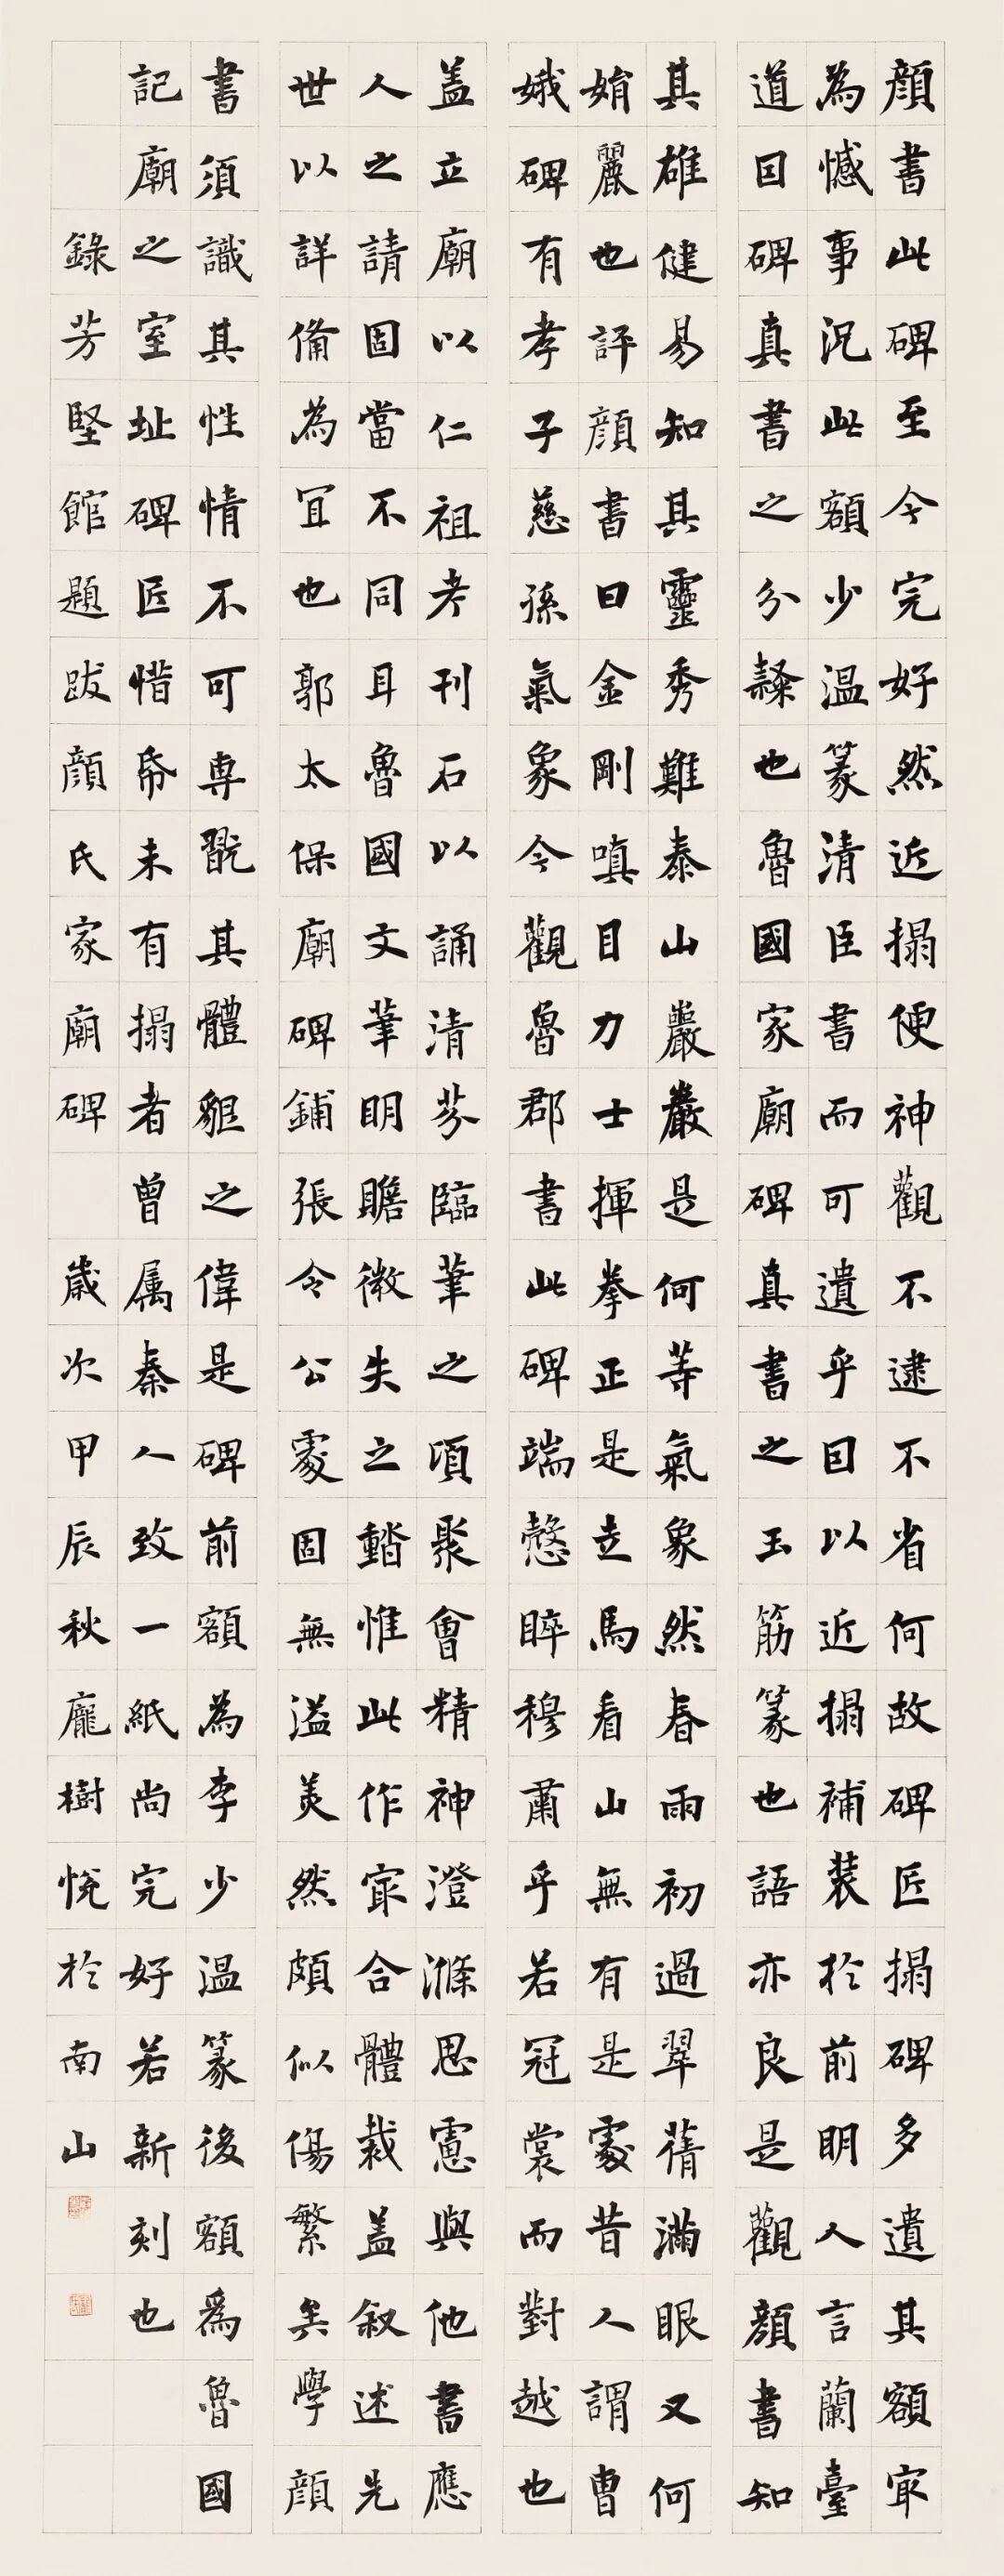 顔書此碑至今完好然近搨便神觀不逮不省何故碑匠搨碑多遺其額寔
為憾事況此額少温篆清臣書而可遺乎因以近搨補装於前明人言蘭臺
道因碑真書之分隸也魯國家廟碑真書之玉筋篆也語亦良是觀顔書知
其雄健易知其靈秀難泰山嚴嚴是何等氣象然春雨初過翠蒨滿眼又何
娟麗也評顔書曰金剛嗔目力士揮拳正是走馬看山無有是處昔人謂曹
娥碑有孝子慈孫氣象今觀魯郡書此碑端慤睟穆肅乎若冠裳而對越也
盖立廟以仁祖考刊石以誦清芬臨筆之頃聚會精神澄滌思慮與他書應
人之請固當不同耳魯國文筆明瞻微失之蹖惟此作寔合體裁盖叙述先
世以詳俻為宜也郭太保廟碑鋪張令公處固無溢美然頗似傷繁矣學顔
書須識其性情不可専翫其體貌之偉是碑前額為李少温篆後額爲魯國
記廟之室址碑匠惜帋未有搨者曾属秦人致一紙尚完好若新刻也
錄芳堅館題跋顔氏家廟碑 歲次甲辰秋龐樹悅於南山